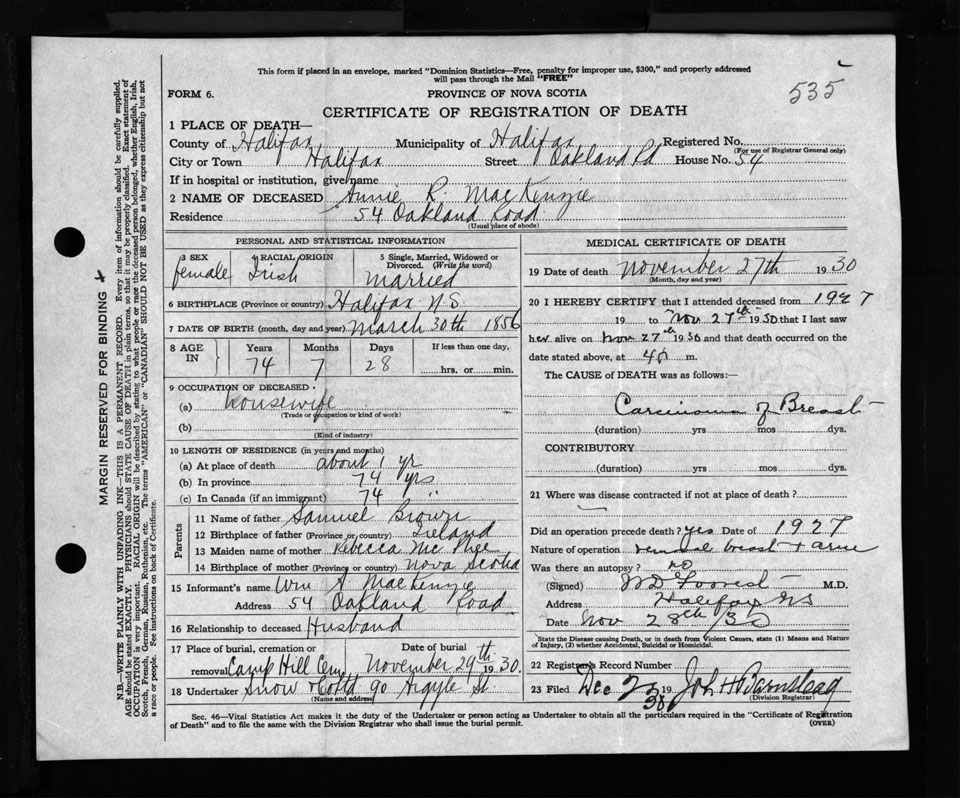 This form if placed in an envelope, marked "Dominion Statistics—Free, penalty for improper use, $300," and properly addressed
will pass through the Mail "FREE"
535
FORM 6.
PROVINCE OF NOVA SCOTIA
CERTIFICATE OF REGISTRATION OF DEATH
1 PLACE OF DEATH—
County of Halifax Municipality of Halifax Registered No.
(For use of Registrar General only)
City or Town Halifax Street Oakland Rd House No. 54
If in hospital or institution, give name
2 NAME OF DECEASED Annie R. MacKenzie
Residence 54 Oakland Road
(Usual place of abode)
PERSONAL AND STATISTICAL INFORMATION
3 SEX female
4 RACIAL ORIGIN Irish
5 Single, Married, Widowed or Divorced. (Write the word) Married
6 BIRTHPLACE (Province or country) Halifax N.S.
7 DATE OF BIRTH (month, day and year) March 30th 1856
8 AGE IN Years Months Days If less than one day,
74 7 28 hrs. or min.
9 OCCUPATION OF DECEASED
(a) housewife
(Trade or occupation or kind of work)
(b)
(Kind of industry)
10 LENGTH OF RESIDENCE (in years and months)
(a) At place of death about 1 yr
(b) In province 74 yrs
(c) In Canada (if an immigrant) 74 "
Parents
11 Name of father Samuel Brown
12 Birthplace of father (Province or country) Ireland
13 Maiden name of mother Rebecca Mc Phee
14 Birthplace of mother (Province or country) Nova Scotia
15 Informant's name Wm A MacKenzie
Address 54 Oakland Road
16 Relationship to deceased Husband
17 Place of burial, cremation or removal Camp Hill Cem
Date of burial November 29th 1930.
18 Undertaker Snow & Co Ltd 90 Argyle St.
(Name and address)
MEDICAL CERTIFICATE OF DEATH
19 Date of death November 27th 1930
(Month, day and year)
20 I HEREBY CERTIFY that I attended deceased from 1927
19 to Nov 27th 1930 that I last saw
her alive on Nov 27th 1930 and that death occurred on the
date stated above, at m.
The CAUSE of DEATH was as follows:—
Carcinoma of Breast
(duration) yrs mos dys.
CONTRIBUTORY
(duration) yrs mos dys.
21 Where was disease contracted if not at place of death?
Did an operation precede death? yes Date of 1927
Nature of operation removal breast +
Was there an autopsy? no
(Signed) W D Forrest M.D.
Address Halifax NS
Date Nov 28th/30
State the Disease causing Death, or in death from Violent Causes, state (1) Means and Nature
of Injury, (2) whether Accidental, Suicidal or Homicidal.
22 Registrar's Record Number
23 Filed Dec 2 1930 John H Barnstead
(Division Registrar)
Sec. 46—Vital Statistics Act makes it the duty of the Undertaker or person acting as Undertaker to obtain all the particulars required in the "Certificate of Registration
of Death" and to file the same with the Division Registrar who shall issue the burial permit.
(OVER)
MARGIN RESERVED FOR BINDING
N.B.—WRITE PLAINLY WITH UNFADING INK—THIS IS A PERMANENT RECORD. Every item of information should be carefully supplied.
AGE should be stated EXACTLY. PHYSICIANS should STATE CAUSE OF DEATH in plain terms, so that it may be properly classified. Exact statement of
OCCUPATION is very important. RACIAL ORIGIN will be described by stating to what people or race the deceased person belonged, whether English, Irish,
Scotch, French, German, Russian, Ruthenian, etc. The terms "AMERICAN" or "CANADIAN" SHOULD NOT BE USED as they express citizenship but not
a race or people. See instructions on back of Certificate.